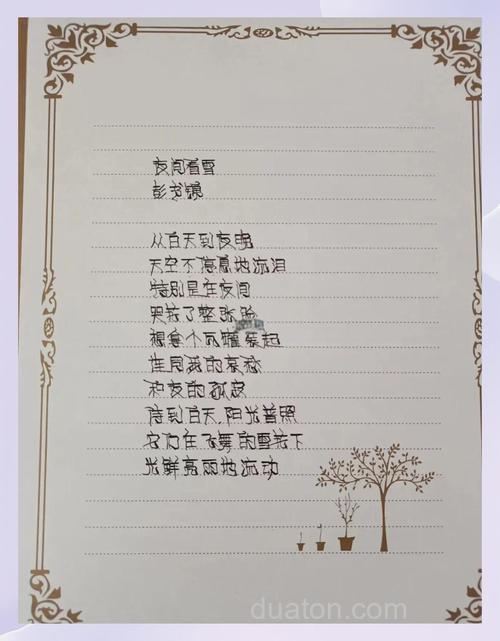 夜间看雪
彭戈镜
从白天到夜晚
天空不停息地流泪
特别是在夜间
哭花了整张脸
想拿个瓦罐装起
连同我的哀愁
和夜的孤寂
待到白天,阳光普照
它们在飞舞的雪花下
光鲜亮丽地流动
duaton.com